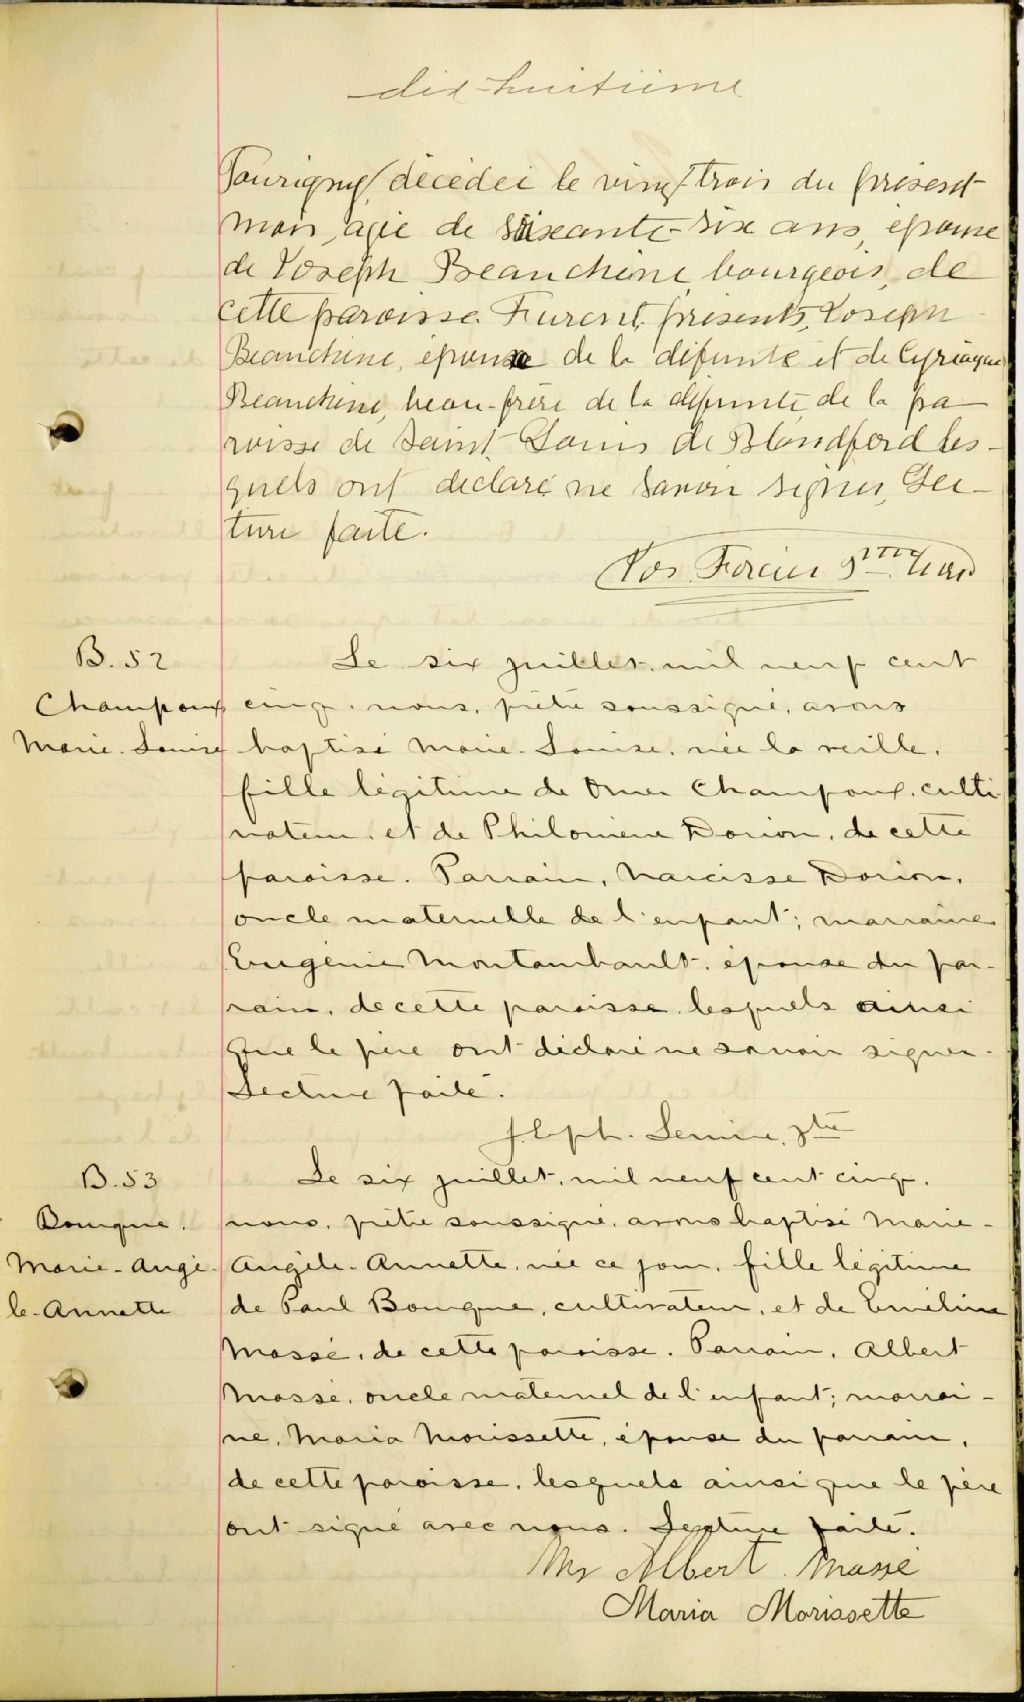 dix-huitième
Tourigny, décédée le vingt trois du présent
mois, agée de soixante-six ans, épouse
de Joseph Beauchène bourgeois, de
cette paroisse. Furent présents, Joseph
Beauchène, époux de la défunte et de Cyriaque
Beauchène, beau-frère de la défunte, de la pa-
roisse de Saint Louis de Blandford les-
quels ont déclaré ne savoir signer, Lec-
ture faite.
Jos. Forcier Ptre Curé
B. 52
Champoux
Marie-Louise
Le six juillet, mil neuf cent
cinq, nous, prêtre soussigné, avons
baptisé Marie-Louise, née la veille,
fille légitime de Omer Champoux, culti
vateur, et de Philomène Dorion, de cette
paroisse. Parrain, Narcisse Dorion,
oncle maternelle de l'enfant; marraine
Eugénie Montambault, épouse du par-
rain, de cette paroisse, lesquels ainsi
que le père ont déclaré ne savoir signer.
Lecture faite.
ptre
B. 53
Bourque,
Marie-Angè-
le-Annette
Le six juillet, mil neuf cent cinq,
nous, prêtre soussigné, avons baptisé Marie-
Angèle-Annette, née ce jour, fille légitime
de Paul Bourque, cultivateur, et de Emélina
Massé, de cette paroisse. Parrain, Albert
Massé, oncle maternel de l'enfant; marrai-
ne, Maria Morissette, épouse du parrain,
de cette paroisse, lesquels ainsi que le père
ont signé avec nous. Lecture faite.
Mr Albert Massé
Maria Morissette